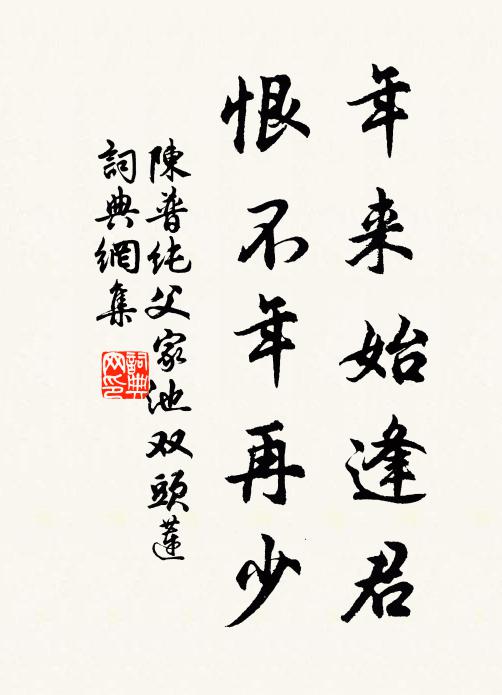 年来始逢君
恨不年再少
陳普纯父家池双頭蓮
詞典網集
詞典网印